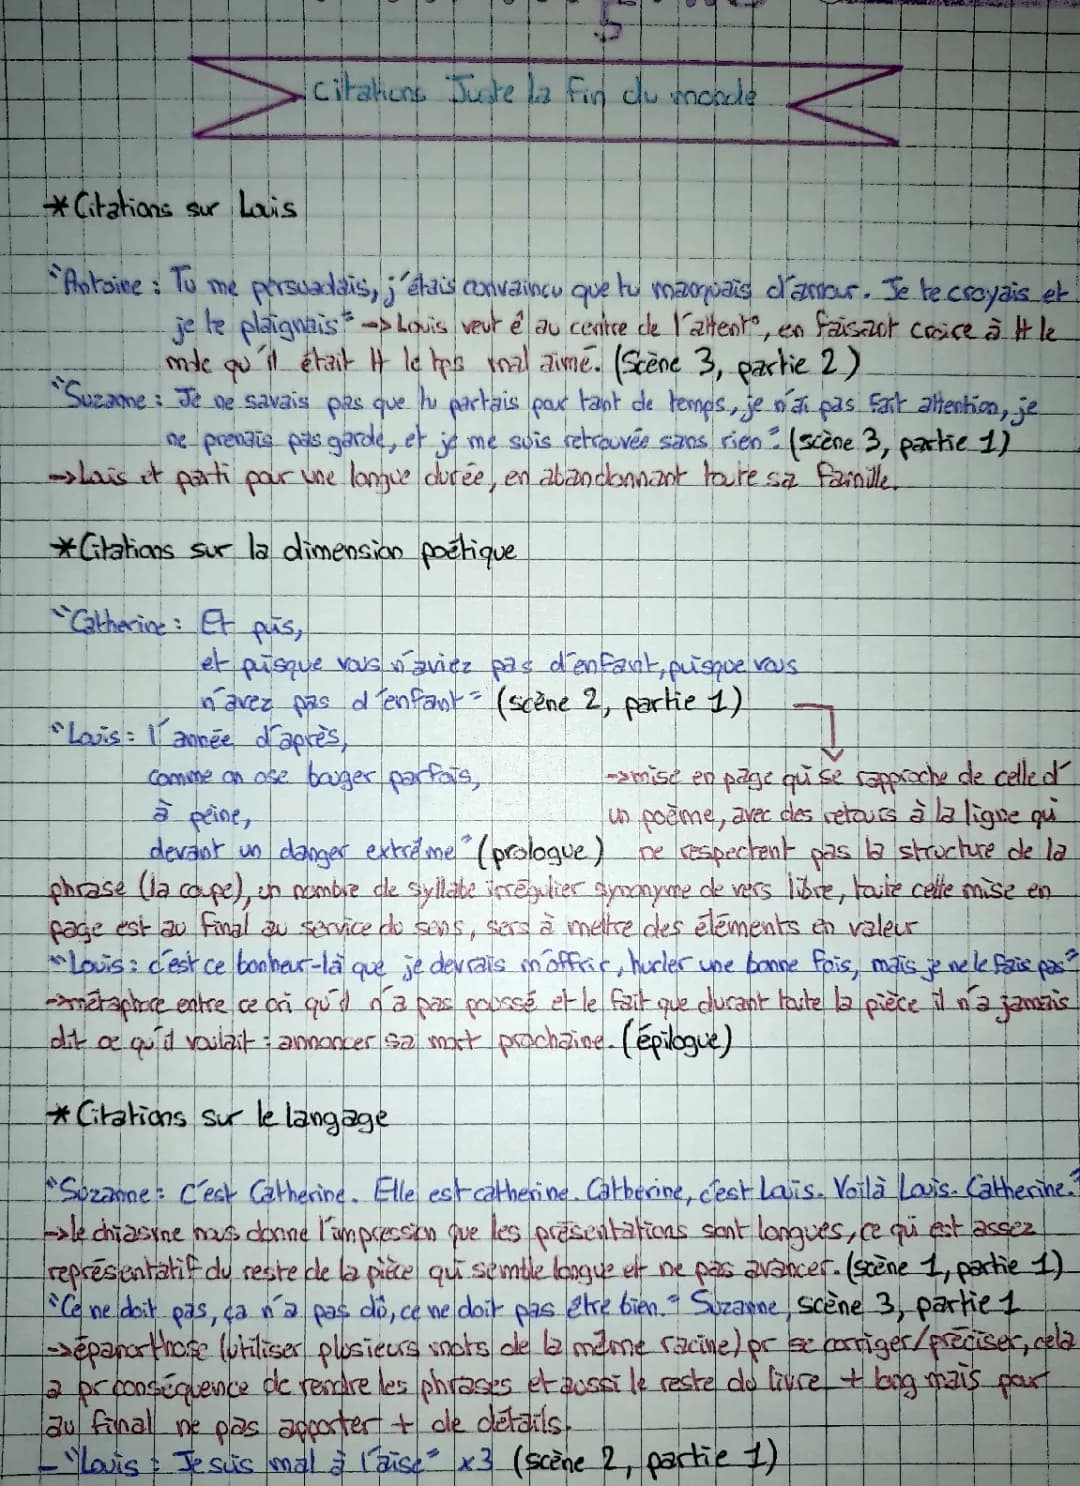 Citations Juste la fin du monde
* Citations sur Louis
"Antoine : Tu me persuadais, j'étais convaincu que tu manquais d'amour. Je te croyais et
je te plaignais" -> Louis veut ê au centre de l'attent°, en faisant croire à tt le
mde qu'il était tt le tps mal aimé. (Scène 3, partie 2)
"Suzanne : Je ne savais pas que tu partais pour tant de temps, je n'ai pas fait attention, je
ne prenais pas garde, et je me suis retrouvée sans rien" (scène 3, partie 1)
-> Louis et parti pour une longue durée, en abandonnant toute sa famille.
* Citations sur la dimension poétique
"Catherine : Et puis,
et puisque vous n'aviez pas d'enfant, puisque vous
n'avez pas d'enfant" (scène 2, partie 1)
"Louis : l'année d'après,
comme on ose bouger parfois,
à peine,
devant un danger extrême" (prologue)
-> mise en page qui se rapproche de celle d'
un poème, avec des retours à la ligne qui
ne respectent pas la structure de la
phrase (la coupe), un nombre de syllabe irrégulier synonyme de vers libre, toute cette mise en
page est au final au service du sens, sers à mettre des éléments en valeur
"Louis : c'est ce bonheur-là que je devrais m'offrir, hurler une bonne fois, mais je ne le fais pas"
-> métaphore entre ce cri qu'il n'a pas poussé et le fait que durant toute la pièce il n'a jamais
dit ce qu'il voulait : annoncer sa mort prochaine. (épilogue)
* Citations sur le langage
"Suzanne : C'est Catherine. Elle est catherine. Catherine, c'est Louis. Voilà Louis. Catherine."
-> le chiasme nous donne l'impression que les présentations sont longues, ce qui est assez
représentatif du reste de la pièce qui semble longue et ne pas avancer. (scène 1, partie 1)
"Ce ne doit pas, ça n'a pas dû, ce ne doit pas être bien." Suzanne, scène 3, partie 1
-> épanorthose (utiliser plusieurs mots de la même racine) pr se corriger/préciser, cela
a pr conséquence de rendre les phrases et aussi le reste du livre + long mais pour
au final ne pas apporter + de détails.
- "Louis : Je suis mal à l'aise" x3 (scène 2, partie 1)